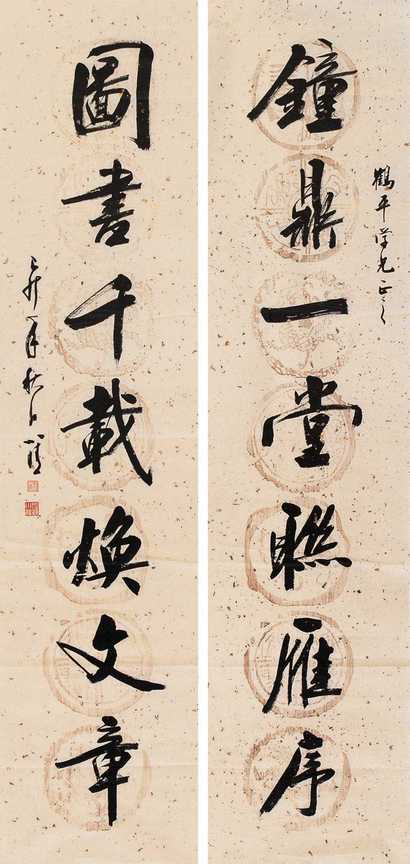 鐘鼎一堂聯雁序
鶴平學兄正之
圖書千載煥文章